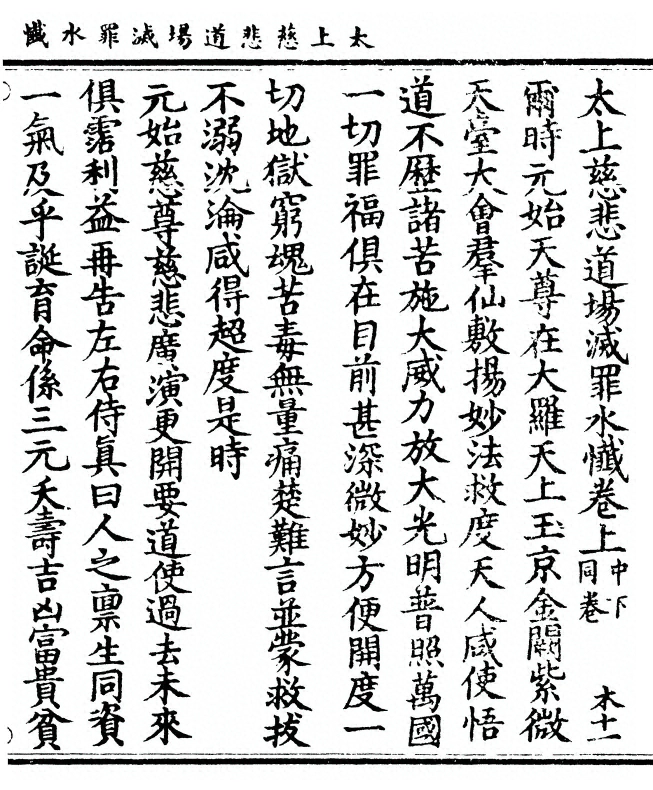 太上慈悲道場滅罪水懺
太上慈悲道場滅罪水懺卷上中下同卷 木十一
爾時元始天尊在大羅天上玉京金闕紫微
天臺大會羣仙敷揚妙法救度天人咸使悟
道不歷諸苦施大威力放大光明普照萬國
一切罪福俱在目前甚深微妙方便開度一
切地獄窮魂苦毒無量痛楚難言並蒙救拔
不溺沈淪咸得超度是時
元始慈尊慈悲廣演更開要道使過去未來
俱霑利益再告左右侍真曰人之禀生同資
一氣及乎誕育命係三元夭壽吉凶富貴貧